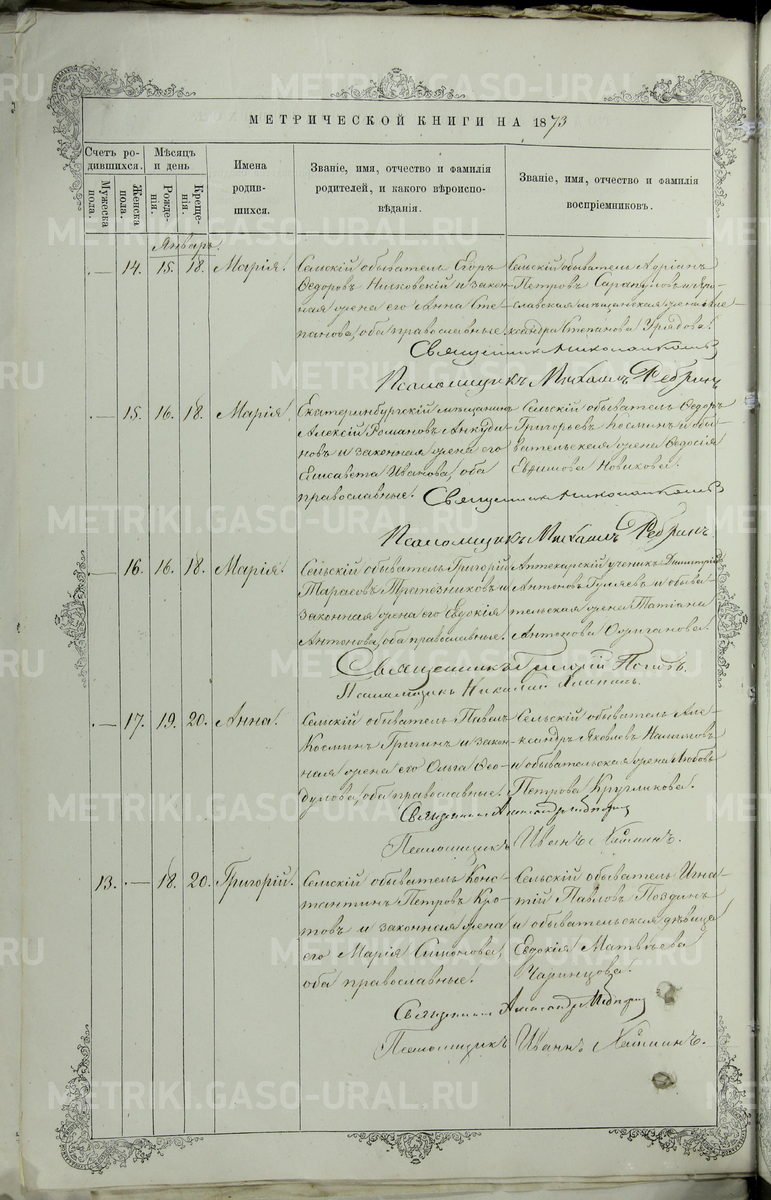 МЕТРИЧЕСКОЙ КНИГИ НА 1873
Счетъ родившихся.
Мѣсяцъ и день
Имена родившихся.
Званіе, имя, отчество и фамилія родителей, и какого вѣроисповѣданія.
Званіе, имя, отчество и фамилія воспріемниковъ.
Мужеска пола.
Женска пола.
Рожденія.
Крещенія.
Январь.
— 14. 15. 18. Марія.
Сельскій обыватель Егоръ
Ѳедоровъ и закон-
ная жена его Анна Сте-
панова, оба православные.
Сельскій обыватель Адріанъ
Петровъ
мѣщанская жена Але-
ксандра Степанова
Священникъ
Псаломщикъ Михаилъ
— 15. 16. 18. Марія.
Екатеринбургскій мѣщанинъ
Алексій Романовъ Анкуди-
новъ и законная жена его
Елисавета Иванова, оба
православные.
Сельскій обыватель Ѳедоръ
Григорьевъ Косминъ и обы-
вательская жена Ѳедосія
Новикова.
Священникъ
Псаломщикъ Михаилъ
— 16. 16. 18. Марія.
Сельскій обыватель Григорій
Тарасовъ Трапезниковъ и
законная жена его Евдокія
Антонова, оба православные.
Аптекарскій ученикъ Димитрій
Антоновъ Гуляевъ и обыва-
тельская жена Татіана
Антонова
Священникъ Григорій Поповъ.
Псаломщикъ Николай
— 17. 19. 20. Анна.
Сельскій обыватель Павелъ
Косминъ и закон-
ная жена его Ольга Ѳео-
дулова, оба православные.
Сельскій обыватель Але-
ксандръ Яковлевъ Налимовъ
и обывательская жена Любовь
Петрова Кругликова.
Священникъ Александръ
Псаломщикъ Иванъ
13. — 18. 20. Григорій.
Сельскій обыватель Конс-
тантинъ Петровъ Кро-
товъ и законная жена
его Марія Симонова,
оба православные.
Сельскій обыватель Игна-
тій Павловъ Поздинъ
и обывательская дѣвица
Евдокія Матвѣева
Чаринцова.
Священникъ Александръ
Псаломщикъ Иванъ
METRIKI.GASO-URAL.RU